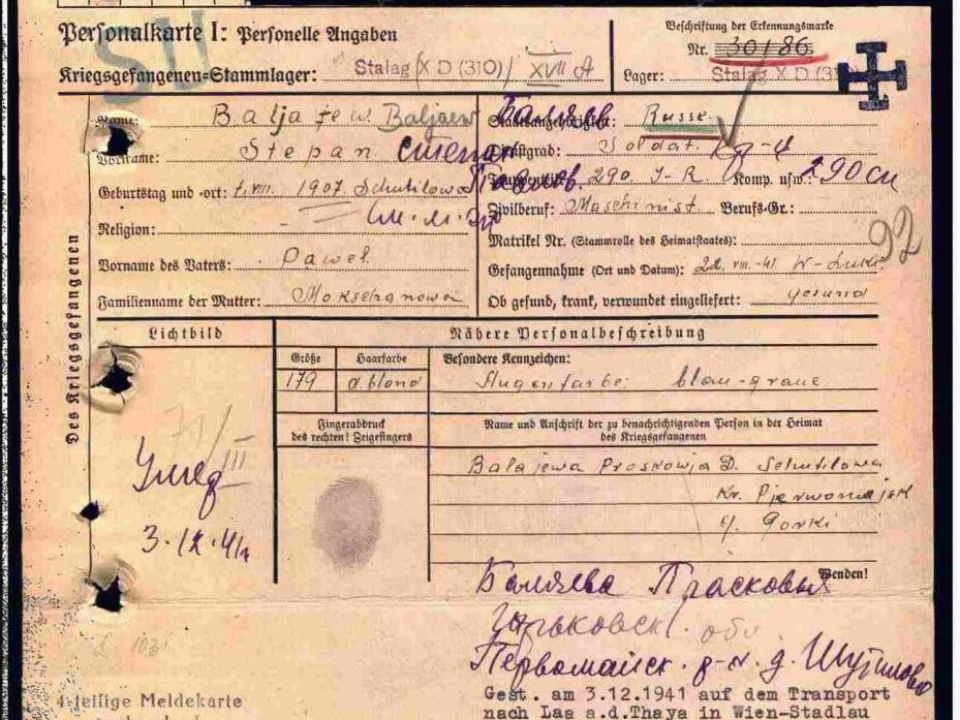 SU
Personalkarte I: Personelle Angaben
Beschriftung der Erkennungsmarke
Nr. 30186
Kriegsgefangenen=Stammlager: Stalag X D (310) / XVII A
Lager: Stalag X D (31
Name: Baljajew. Baljaew Баляев
Staatsangehörigkeit: Russe.
Vorname: Stepan Степан
Dienstgrad: Soldat. кр-ц
Geburtstag und -ort: 1. VIII. 1907. Schutilowa Павлов.
Truppenteil: 290. I-R. Komp. usw.: 290 сп
Zivilberuf: Maschinist Berufs-Gr.:
Religion: -
Matrikel Nr. (Stammrolle des Heimatstaates):
92
Vorname des Vaters: Pawel
Gefangennahme (Ort und Datum): 22. VIII.-41. W-Luki.
Familienname der Mutter: Mokschanowa
Ob gesund, krank, verwundet eingeliefert: gesund
Des Kriegsgefangenen
Lichtbild
Nähere Personalbeschreibung
Größe
Haarfarbe
Besondere Kennzeichen:
179
d. blond
Augenfarbe: blau-graue
Fingerabdruck
des rechten! Zeigefingers
Name und Anschrift der zu benachrichtigenden Person in der Heimat
des Kriegsgefangenen
III
Умер
3.12.41г
Balajewa Proskowja D. Schutilowa
Kr. Pierwomajsk
g. Gorki
Wenden!
Баляева Прасковья
Горьковск. обл
Первомайск. р-н. д. Шутилово
4-teilige Meldekarte
Gest. am 3.12.1941 auf dem Transport
nach Laa a.d.Thaya in Wien-Stadlau